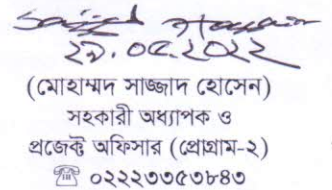 Sajjad Hossain
২৯.০৫.২০২২
(মোহাম্মদ সাজ্জাদ হোসেন)
সহকারী অধ্যাপক ও
প্রজেক্ট অফিসার (প্রোগ্রাম-২)
☎ ০২২২৩৩৫৩৮৪৩